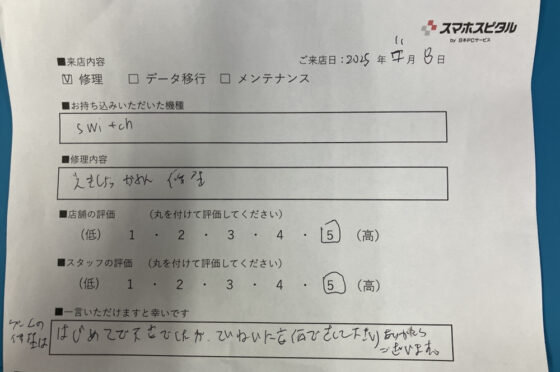 スマホスピタル
by 日本PCサービス
■来店内容
ご来店日：2025 年 11 月 8 日
☑ 修理 □ データ移行 □ メンテナンス
■お持ち込みいただいた機種
switch
■修理内容
えきしょう がめん 修理
■店舗の評価 （丸を付けて評価してください）
（低） 1 ・ 2 ・ 3 ・ 4 ・ 5 （高）
■スタッフの評価 （丸を付けて評価してください）
（低） 1 ・ 2 ・ 3 ・ 4 ・ 5 （高）
■一言いただけますと幸いです
ゲームの
修理は
はじめてで したが、ていねいに して ありがとう
ございます。